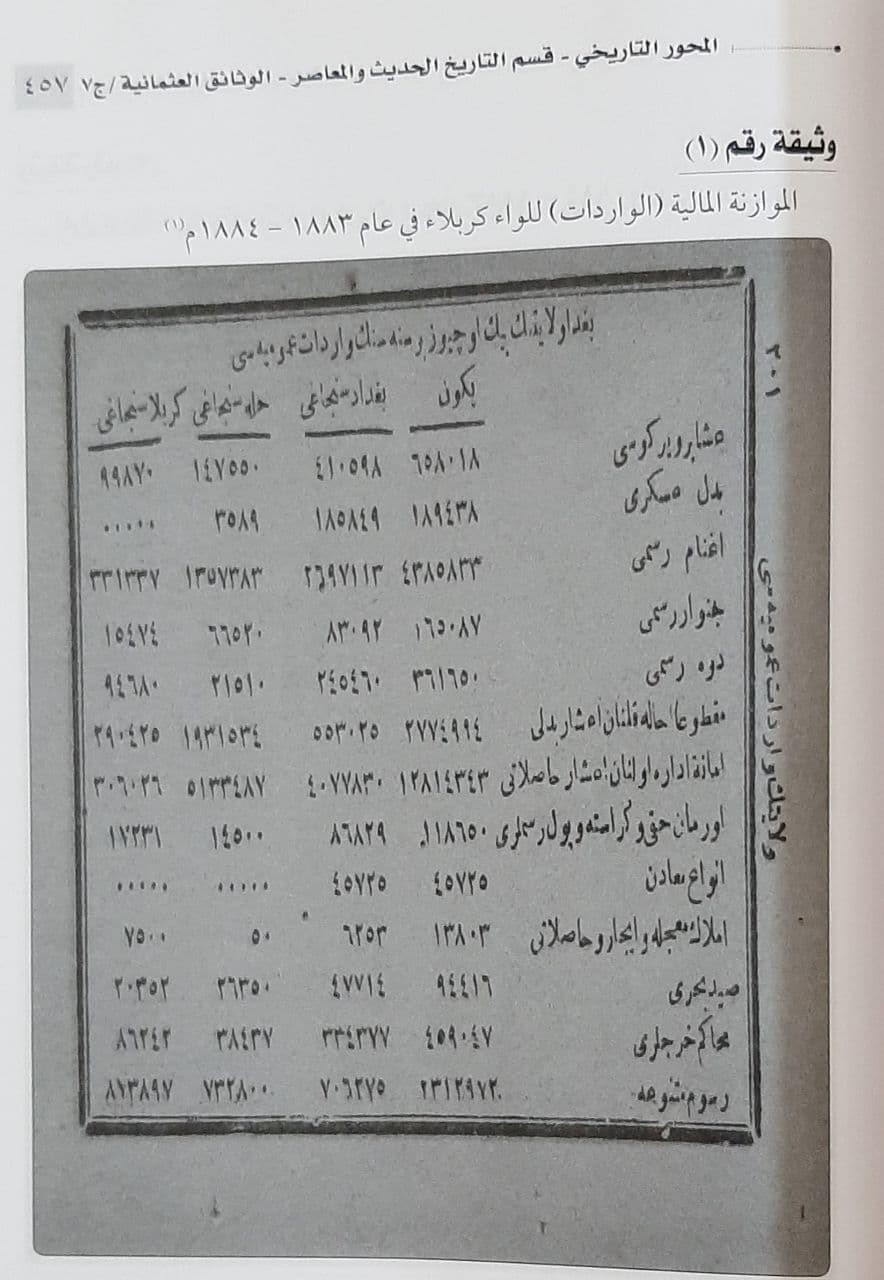 المحور التاريخي - قسم التاريخ الحديث والمعاصر - الوثائق العثمانية /ج٧ ٤٥٧
وثيقة رقم (١)
الموازنة المالية (الواردات) للواء كربلاء في عام ١٨٨٣ - ١٨٨٤م(١)
٣٠١
ولايتك واردات عموميه سى
بغداد ولايتنك بيك اوچيوز بر سنه سنك واردات عموميه سى
يكون بغداد سنجاغى حله سنجاغى كربلا سنجاغى
عشاير ويركوسى ٦٥٨٠١٨ ٤١٠٥٩٨ ١٤٧٥٥٠ ٩٩٨٧٠
بدل عسكرى ١٨٩٤٣٨ ١٨٥٨٤٩ ٣٥٨٩ ٠٠٠٠٠
اغنام رسمى ٤٣٨٥٨٣٣ ٢٦٩٧١١٣ ١٣٥٧٣٨٣ ٣٣١٣٣٧
جنوار رسمى ١٦٥٠٨٧ ٨٣٠٩٢ ٦٦٥٢٠ ١٥٤٧٤
دوه رسمى ٣٦١٦٥٠ ٢٤٥٤٦٠ ٢١٥١٠ ٩٤٦٨٠
مقطوعا احاله قلنان اعشار بدلى ٢٧٧٤٩٩٤ ٥٥٣٠٢٥ ١٩٣١٥٣٤ ٢٩٠٤٢٥
امانة اداره اولنان اعشار حاصلاتى ١٢٨١٤٣٤٣ ٤٠٧٧٨٣٠ ٥١٣٣٤٨٧ ٣٠٦٠٢٦
اورمان حق وكراسته وپول رسملرى ١١٨٦٥٠ ٨٦٨٢٩ ١٤٥٠٠ ١٧٢٣١
انواع معادن ٤٥٧٢٥ ٤٥٧٢٥ ٠٠٠٠٠ ٠٠٠٠٠
املاك معجله وايجار وحاصلاتى ١٣٨٠٣ ٦٢٥٣ ٥٠ ٧٥٠٠
صيد بحرى ٩٤٤١٦ ٤٧٧١٤ ٢٦٣٥٠ ٢٠٣٥٢
محاكم خرجلرى ٤٥٩٠٤٧ ٣٣٤٣٧٧ ٣٨٤٣٧ ٨٦٢٤٢
رسوم متنوعه ٢٣١٢٩٧٢ ٧٠٦٢٧٥ ٧٣٢٨٠٠ ٨٧٣٨٩٧